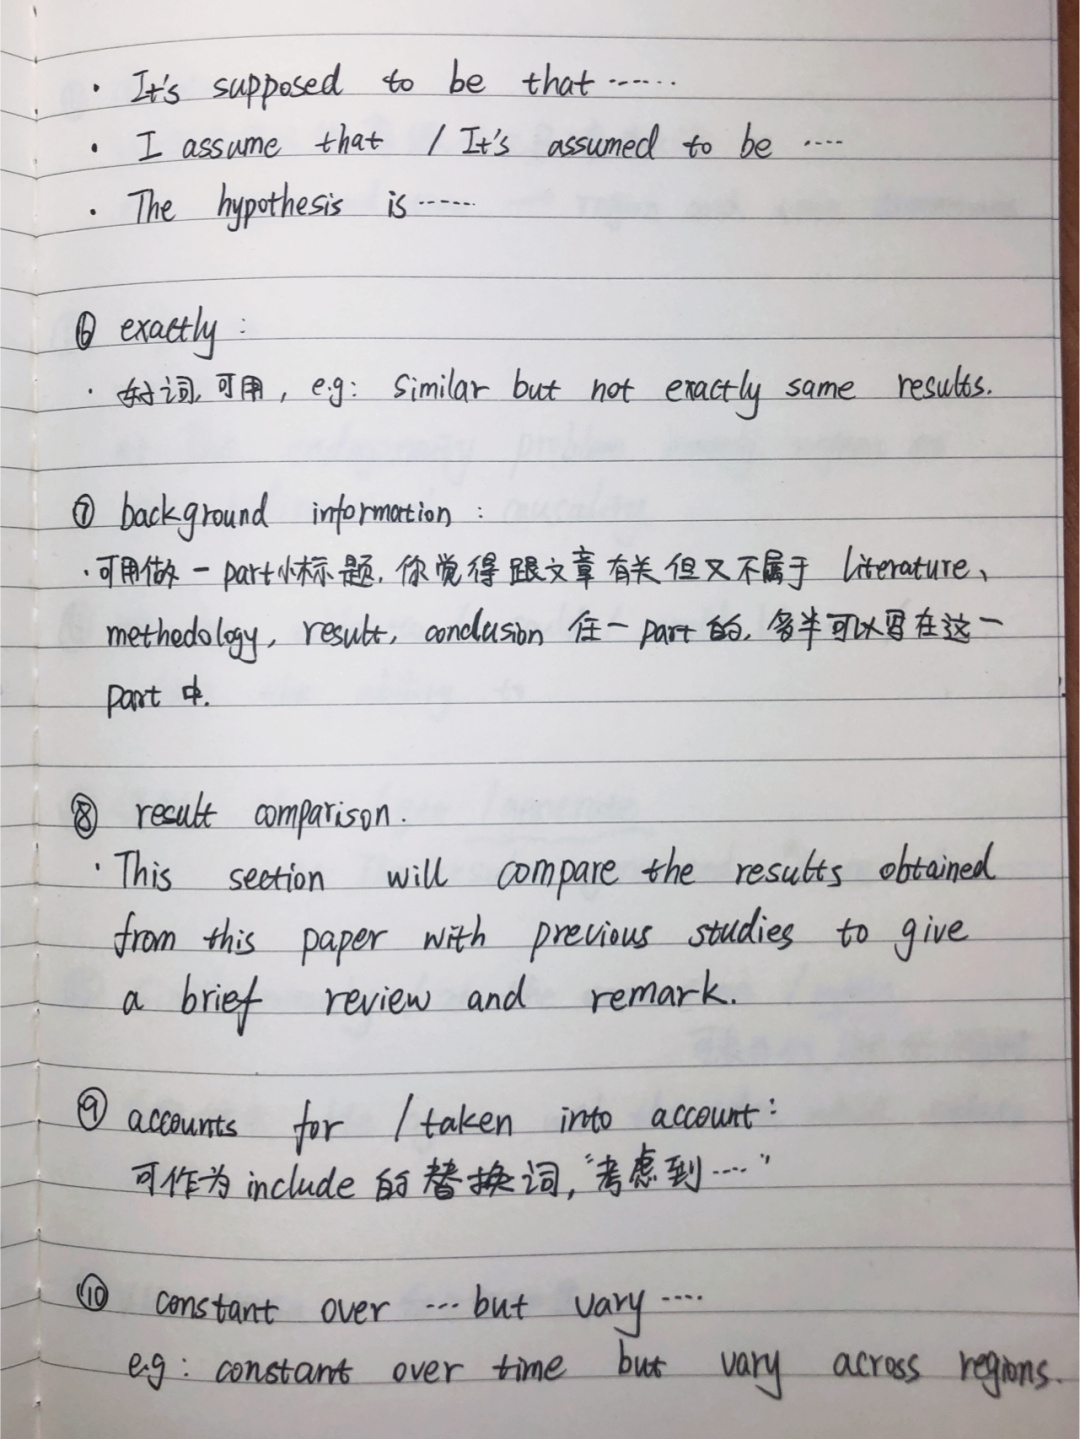 · It's supposed to be that ······
· I assume that / It's assumed to be ····
· The hypothesis is ······
⑥ exactly :
· 好词, 可用, e.g: similar but not exactly same results.
⑦ background information :
· 可用做一part小标题, 你觉得跟文章有关但又不属于 literature、
methedology, result, conclusion 任一part的, 多半可以写在这一
part 中.
⑧ result comparison.
· This section will compare the results obtained
from this paper with previous studies to give
a brief review and remark.
⑨ accounts for / taken into account:
可作为 include 的替换词, "考虑到····"
⑩ constant over ··· but vary ····
e.g: constant over time but vary across regions.